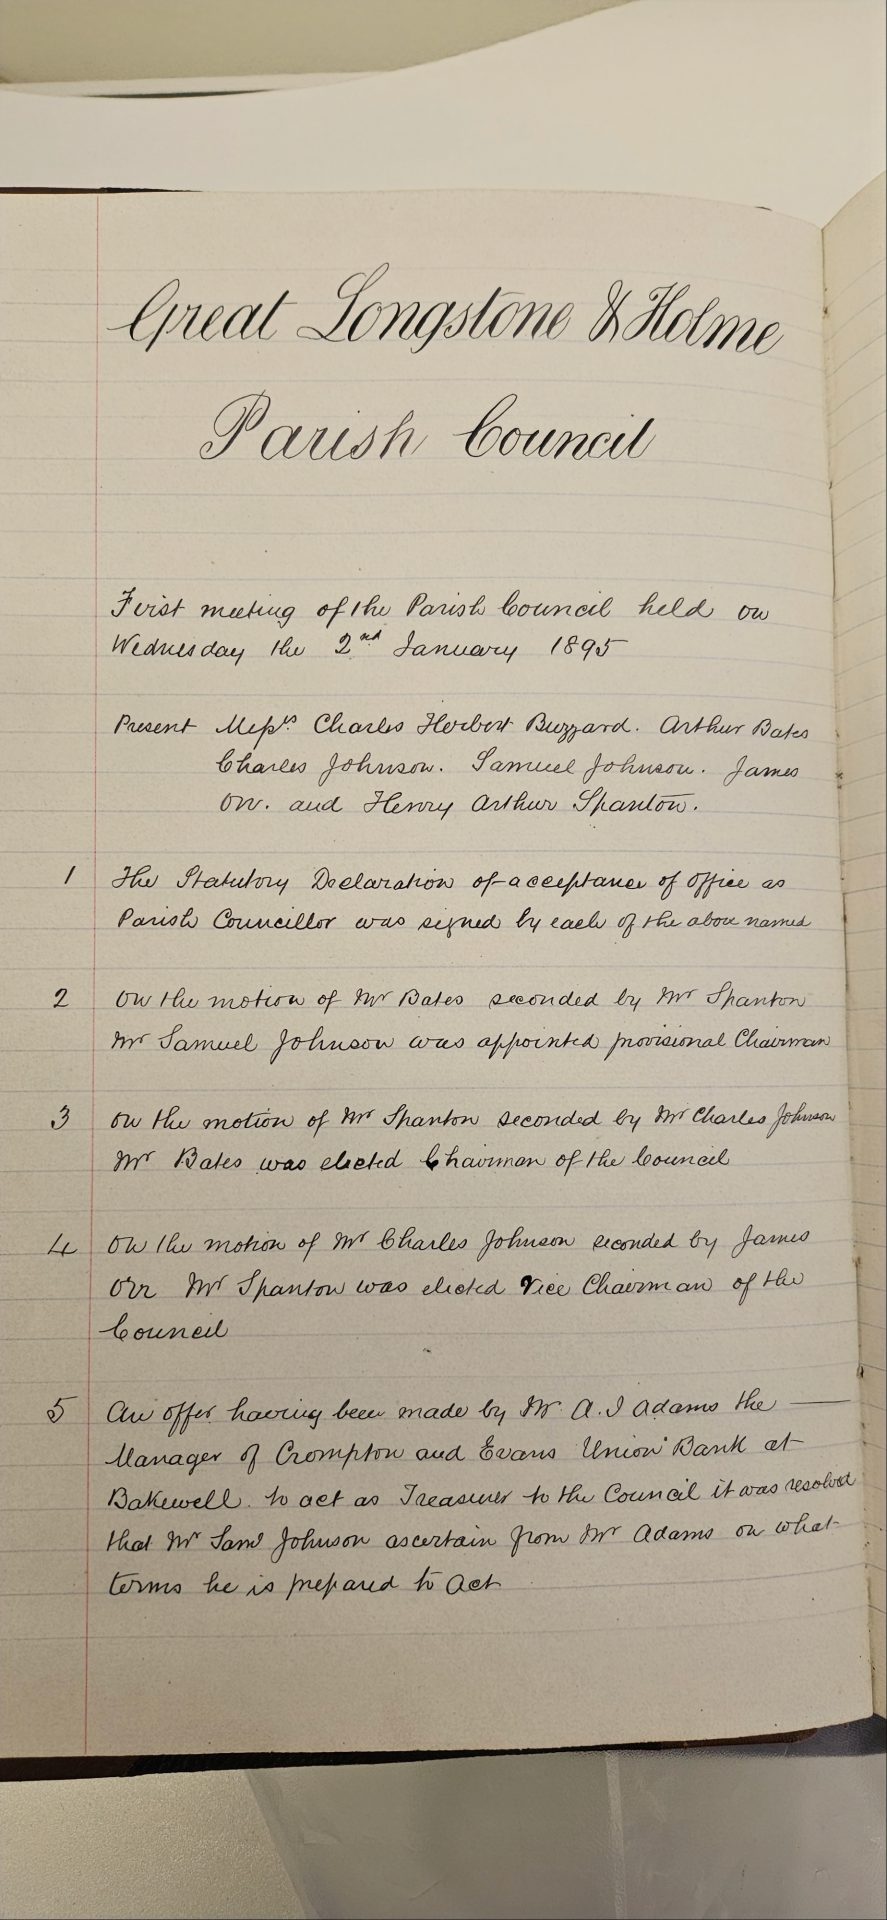 Great Longstone & Holme
Parish Council
First meeting of the Parish Council held on
Wednesday the 2nd January 1895
Present Messrs. Charles Herbert Buzzard. Arthur Bates
Charles Johnson. Samuel Johnson. James
Orr. and Henry Arthur Spanton.
1 The Statutory Declaration of acceptance of office as
Parish Councillor was signed by each of the above named
2 On the motion of Mr Bates seconded by Mr Spanton
Mr Samuel Johnson was appointed provisional Chairman
3 On the motion of Mr Spanton seconded by Mr Charles Johnson
Mr Bates was elected Chairman of the Council
4 On the motion of Mr Charles Johnson seconded by James
Orr Mr Spanton was elected Vice Chairman of the
Council
5 An offer having been made by Mr. A. J Adams the —
Manager of Crompton and Evans Union Bank at
Bakewell. to act as Treasurer to the Council it was resolved
that Mr Saml Johnson ascertain from Mr Adams on what
terms he is prepared to act